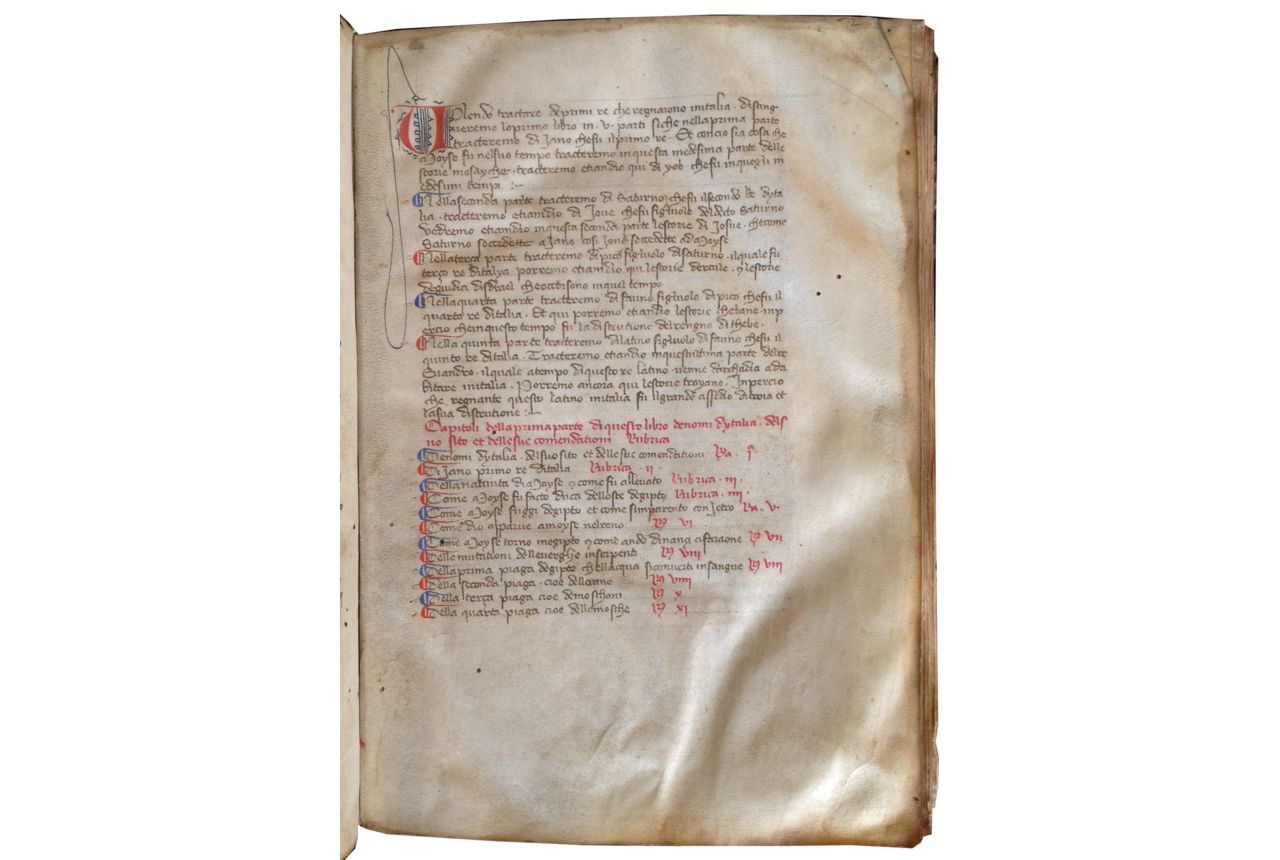 Volendo tractare de primi re che regnarono in italia. disting
ueremo lo primo libro in .v. parti siche nella prima parte
tracteremo di Jano che fu il primo re. Et concio sia cosa che
Moyse fu nel suo tempo tracteremo in questa medesima parte delle
storie mosayche. tracteremo etiandio qui di yob che fu in quegli m
edesimi tempi :~
Nella seconda parte tracteremo di Saturno che fu il secondo Re dyta
lia. tracteremo etiandio di Jove che fu figluolo del decto Saturno
vedremo etiandio in questa seconda parte le storie di Josue. che come
Saturno soccedette a Jano cosi Jouè soccedette ad a Moyse
Nella terça parte tracteremo di pico figluolo di saturno. il quale fu
terço re ditalya porremo etiandio qui le storie dercule. et le storie
de giudici disdrael che occorsono in quel tempo
Nella quarta parte tracteremo di fauno figluolo di pico che fu il
quarto re ditalia. Et qui porremo etiandio le storie thebane. inp
ercio che in questo tempo fu la distrutione del rengno di thebe.
Nella quinta parte tracteremo di latino figluolo di fauno che fu il
quinto re ditalia. Tracteremo etiandio in questultima parte del re
Evandro. il quale a tempo di questo re latino venne darchadia a da
bitare in italia. Porremo ancora qui le storie troyane. Inpercio
che regnante questo latino in italia fu il grande assedio di troia et
la sua distrutione :~
Capitoli della prima parte di questo libro de nomi dytalia. del s
uo sito et delle sue comendationi Rubrica
De nomi dytalia. del suo sito et delle sue comenditioni Ra. i.
Di Jano primo re ditalia Rubrica .ii.
Della nativita di Moyse et come fu allevato Rubrica .iii.
Come Moyse fu facto duca delloste degipto Rubrica .iiii.
Come Moyse fuggi degipto et come simparento con Jetro Ra. v.
Come dio apparve a moyse nel rono R9 vi
Come Moyse torno in egipto et come ando dinançi a faraone R9 vii
Delle mutationi delle verghe in serpenti R9 viii
Della prima piaga degipto che llacqua si converti in sangue R9 viii
Della seconda piaga. cioe delle rane R9 viiii
Della terça piaga cioe de moschoni R9 x
Della quarta piaga cioe delle mosche R9 xi